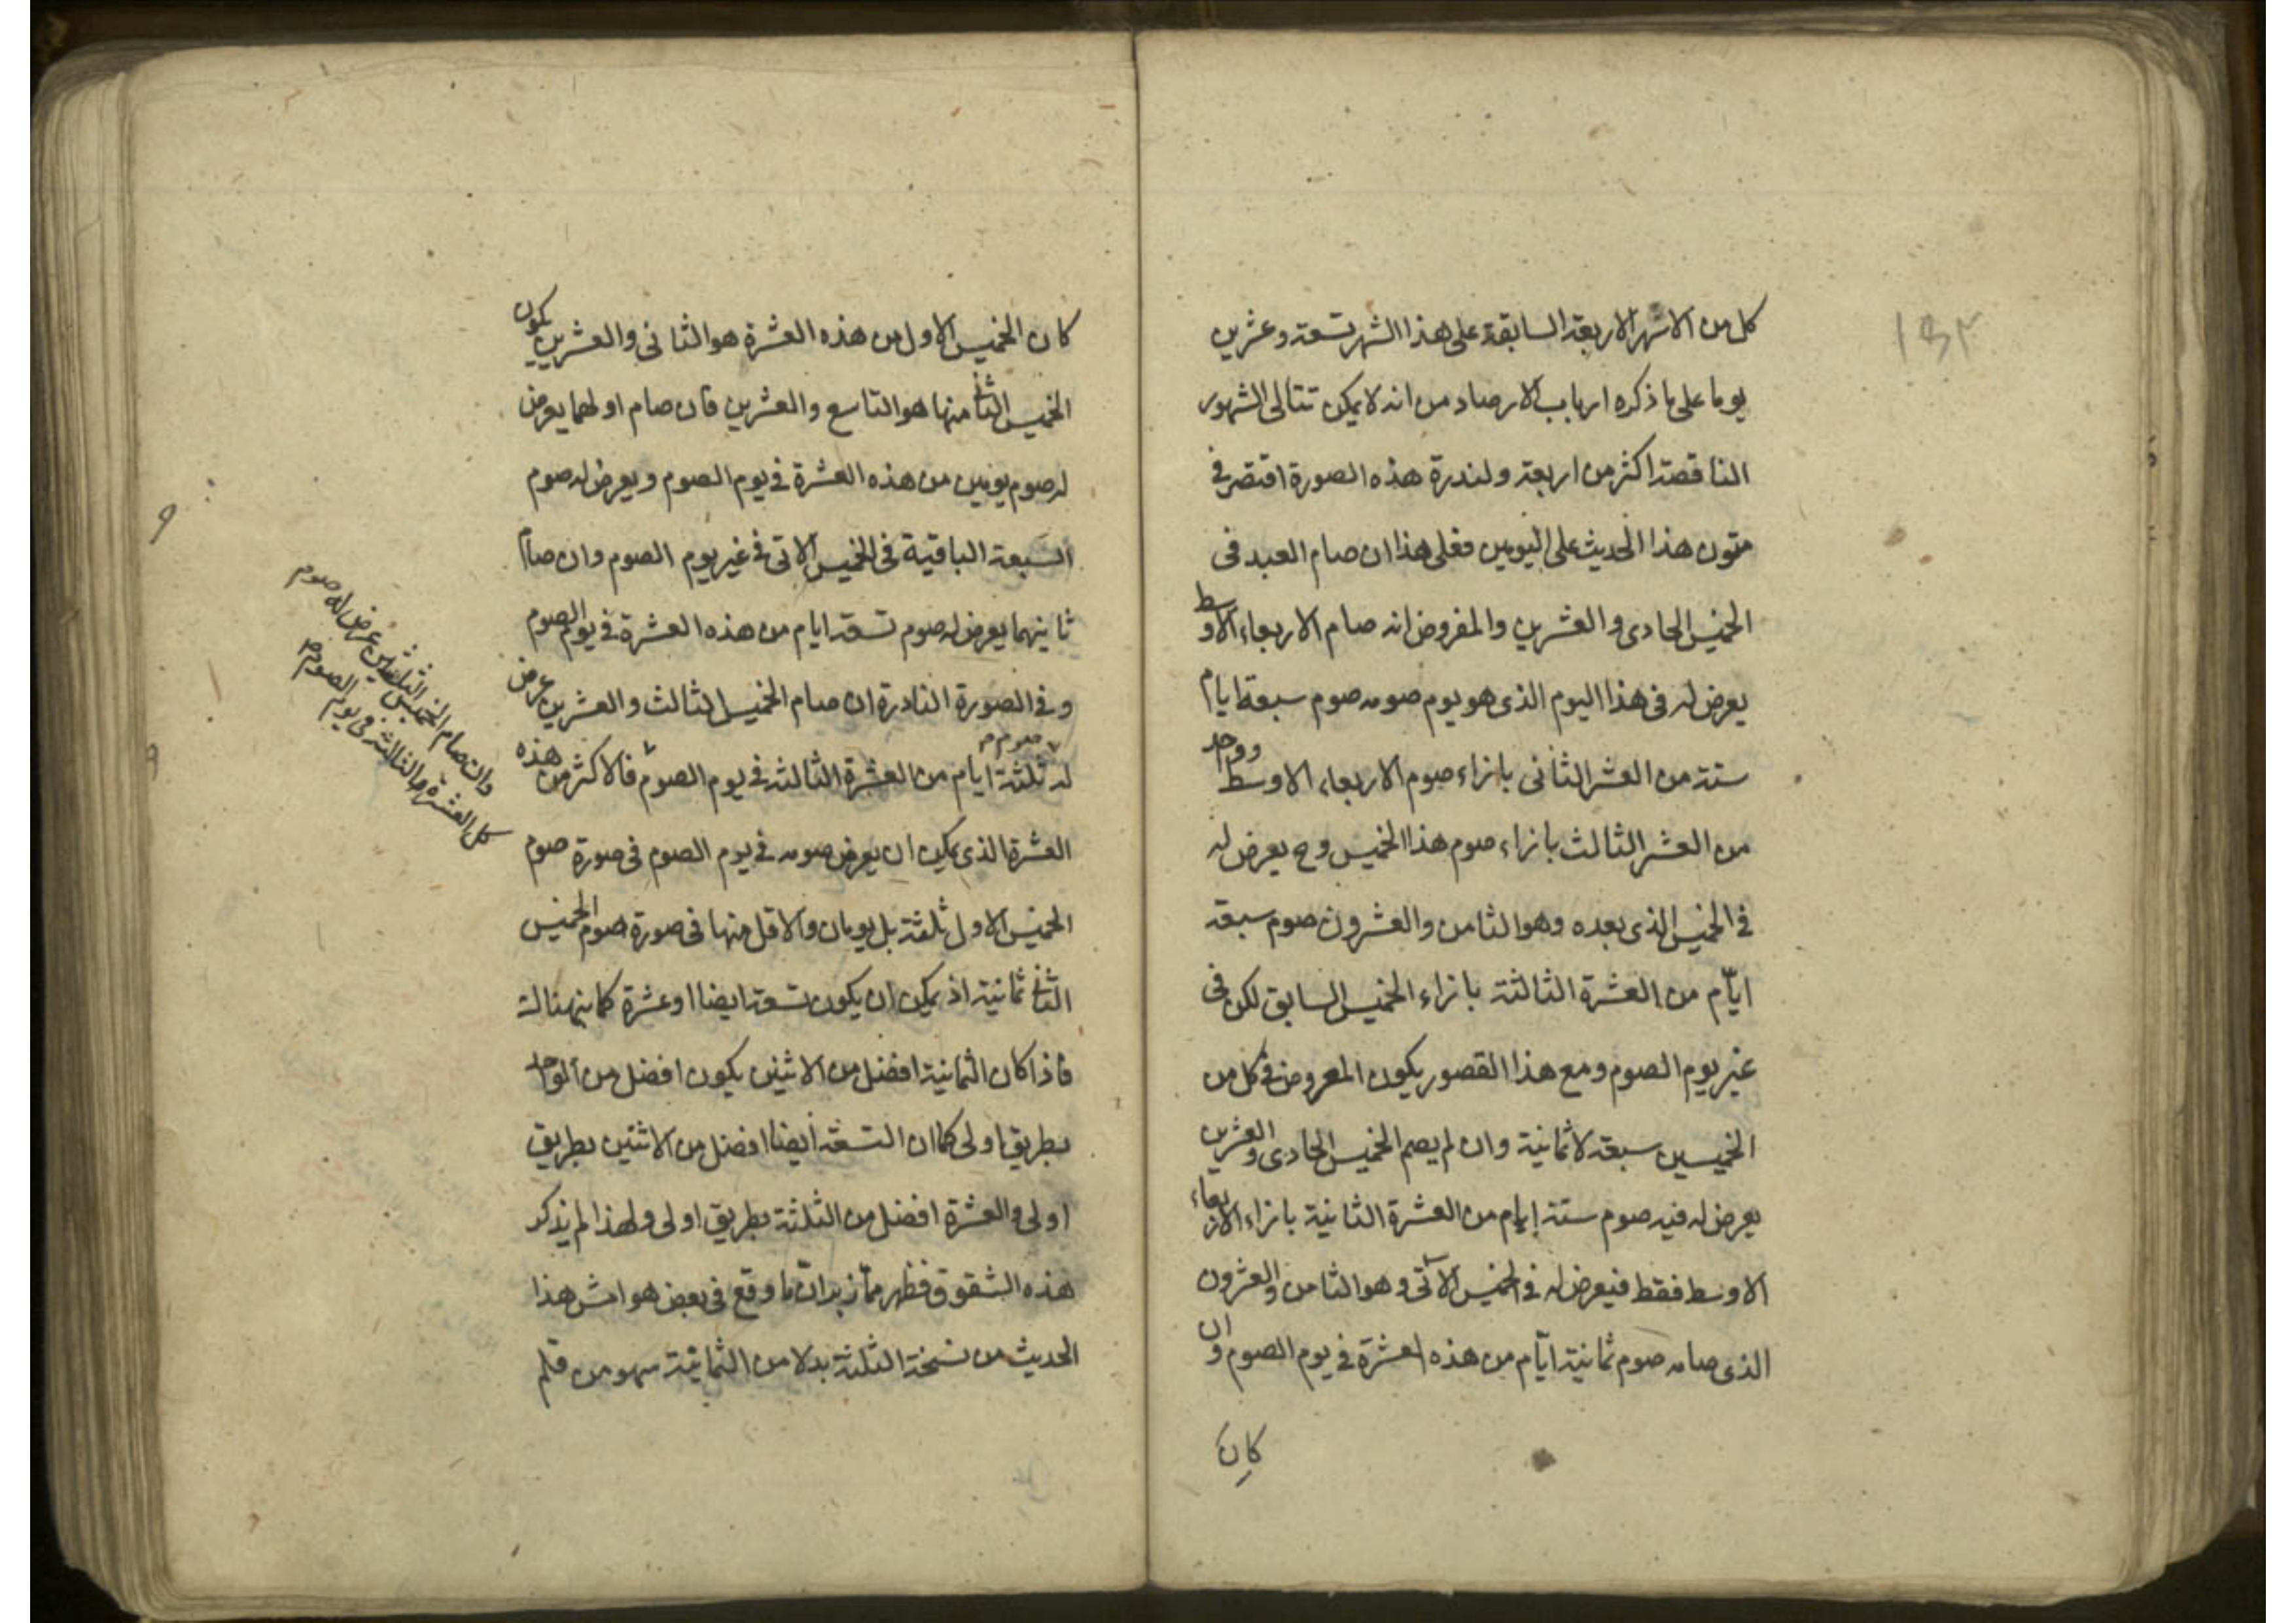 كل من الاشهر الاربعة السابقة على هذا الشهر تسعة وعشرين
يوما على ما ذكره ارباب الارصاد من انه لا يمكن تتالى الشهور
الناقصة اكثر من اربعة ولندرة هذه الصورة اقتصر في
متون هذا الحديث على اليومين فعلى هذا ان صام العبد فى
الخميس الحادى والعشرين والمفروض انه صام الاربعاء الاوسط
يعرض له فى هذا اليوم الذى هو يوم صومه صوم سبعة ايام
ستة من العشر الثانى بازاء صوم الاربعاء الاوسط وواحد
من العشر الثالث بازاء صوم هذا الخميس وح يعرض له
في الخميس الذى بعده وهو الثامن والعشرون صوم سبعة
ايّام من العشرة الثالثة بازاء الخميس السابق لكن فى
غير يوم الصوم ومع هذا القصور يكون المعروض في كل من
الخميسين سبعة لا ثمانية وان لم يصم الخميس الحادى والعشرين
يعرض له فيه صوم ستة ايام من العشرة الثانية بازاء الاربعاء
الاوسط فقط فيعرض له في الخميس الآتى وهو الثامن والعشرون
الذى صامه صوم ثمانية ايّام من هذه العشرة في يوم الصوم وان
كان
كان الخميس الاول من هذه العشرة هو الثانى والعشرين يكون
الخميس الثانى منها هو التاسع والعشرين فان صام اولهما يعرض
له صوم يومين من هذه العشرة في يوم الصوم ويعرض له صوم
السبعة الباقية فى الخميس الاتى في غير يوم الصوم وان صام
ثانيهما يعرض له صوم تسعة ايام من هذه العشرة في يوم الصوم
وفي الصورة النادرة ان صام الخميس الثالث والعشرين عرض
له صوم ثلثة ايام من العشرة الثالثة في يوم الصوم فالاكثر من هذه
العشرة الذى يمكن ان يعرض صومه في يوم الصوم فى صورة صوم
الخميس الاول ثلثة بل يومان والاقل منها فى صورة صوم الخميس
الثانى ثمانية اذ يمكن ان يكون تسعة ايضا او عشرة كما
فاذا كان الثمانية افضل من الاثنين يكون افضل من الواحد
بطريق اولى كما ان التسعة ايضا افضل من الاثنين بطريق
اولى والعشرة افضل من الثلثة بطريق اولى ولهذا لم يذكر
هذه الشقوق فظهر ممّا زبر انّ ما وقع فى بعض هوامش هذا
الحديث من نسخة الثلثة بدلا من الثمانية سهو من قلم
وان صام الخميس الثلثين عرض له صوم
كل العشرة الثالثة فى يوم الصوم
١٥٣